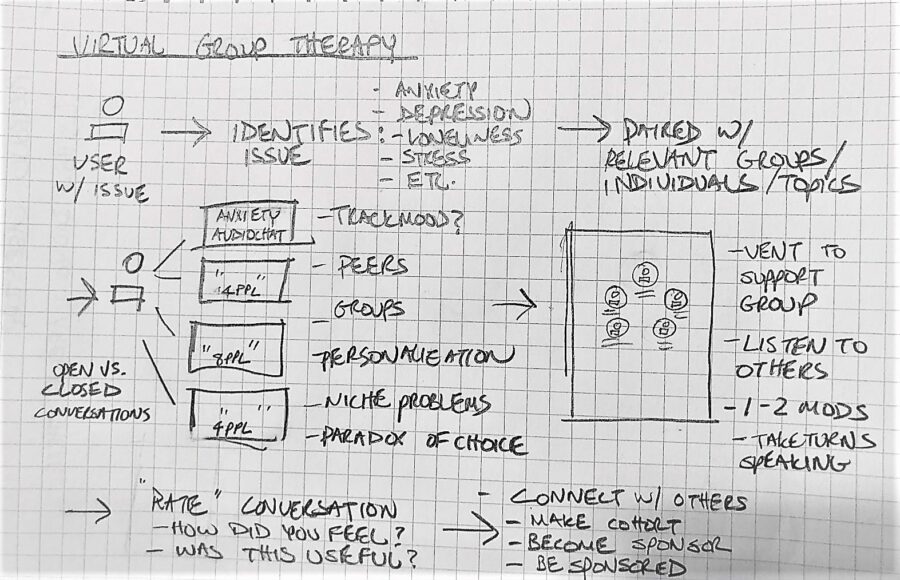 VIRTUAL GROUP THERAPY
USER
W/ ISSUE
IDENTIFIES:
ISSUE
- ANXIETY
- DEPRESSION
- LONELINESS
- STRESS
- ETC.
PAIRED W/
RELEVANT GROUPS/
INDIVIDUALS/TOPICS
OPEN VS.
CLOSED
CONVERSATIONS
ANXIETY
AUDIOCHAT
"4PPL"
"8PPL"
"4PPL"
- TRACK MOOD?
- PEERS
- GROUPS
- PERSONALIZATION
- NICHE PROBLEMS
- PARADOX OF CHOICE
- VENT TO
SUPPORT
GROUP
- LISTEN TO
OTHERS
- 1-2 MODS
- TAKE TURNS
SPEAKING
"RATE" CONVERSATION
- HOW DID YOU FEEL?
- WAS THIS USEFUL?
- CONNECT W/ OTHERS
- MAKE COHORT
- BECOME SPONSOR
- BE SPONSORED